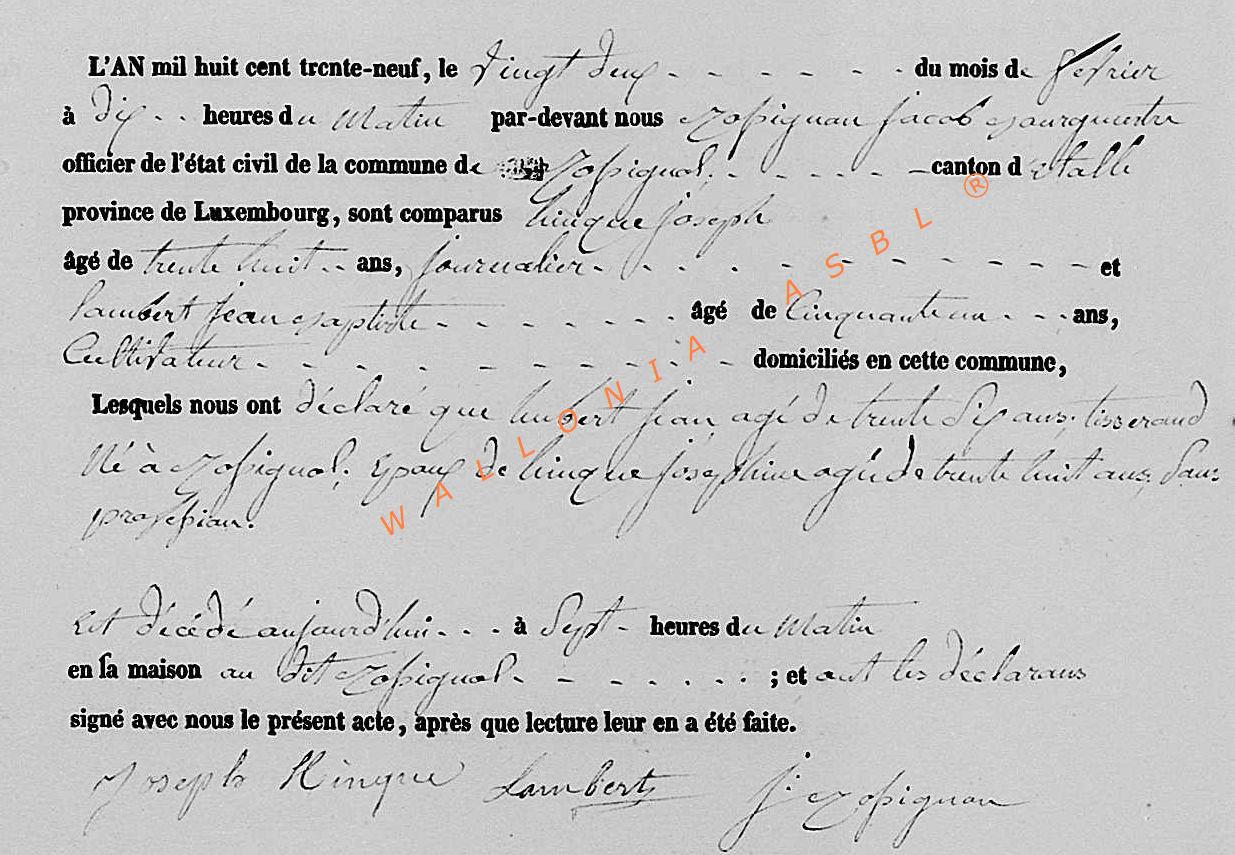 L'AN mil huit cent trente-neuf, le Vingt deux du mois de fevrier
à Dix heures du Matin par-devant nous Rossignon jacob Bourgmestre
officier de l'état civil de la commune de Rossignol. canton d etalle
province de Luxembourg, sont comparus hinque joseph
âgé de trente huit ans, journalier et
Lambert jean Baptiste âgé de Cinquante un ans,
Cultivateur domiciliés en cette commune,
Lesquels nous ont déclaré que jean agé de trente Six ans, tisserand
Né à Rossignol; Epoux de hinque josephine agée de trente huit ans, Sans
profession.
Est décédé aujourd'hui à Sept heures du Matin
en sa maison au dit Rossignol ; et ont les déclarans
signé avec nous le présent acte, après que lecture leur en a été faite.
Joseph Hinque Lambert J: Rossignon
WALLONIA ASBL ®